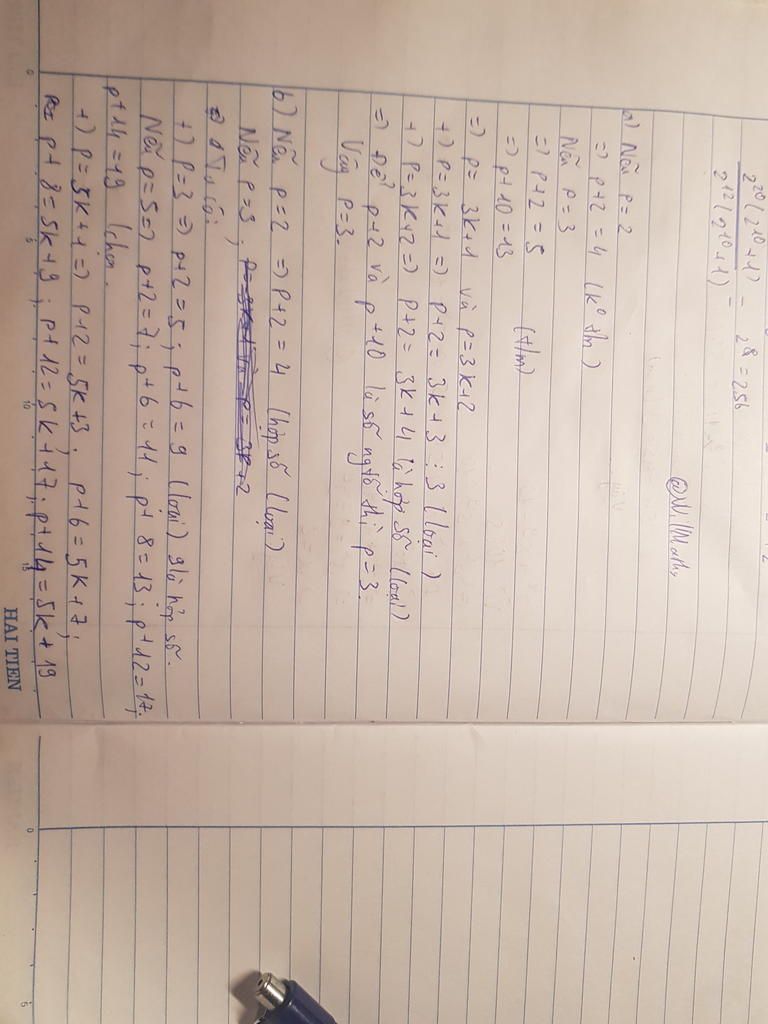 2²⁰(2¹⁰+1) / 2¹²(2¹⁰+1) = 2⁸ = 256
@WillMath
a) Nếu p=2
=> p+2 = 4 (k⁰ t/m)
Nếu p = 3
=> p+2 = 5 (t/m)
=> p+10 = 13
=> p = 3k+1 và p=3k+2
+) p=3k+1 => p+2 = 3k+3 ⋮ 3 (loại)
+) p=3k+2 => p+2 = 3k+4 là hợp số (loại)
=> Để p+2 và p+10 là số ng tố thì p=3.
Vậy p=3.
b) Nếu p=2 => p+2=4 (hợp số (loại)
Nếu p=3,
+) p=3 => p+2=5; p+6=9 (loại) 9 là hợp số.
Nếu p=5 => p+2=7; p+6=11; p+8=13; p+12=17;
p+14=19 (chọn.
+) p=5k+1 => p+2=5k+3. p+6=5k+7;
p+8=5k+9; p+12=5k+17. p+14=5k+19
0
5
10
15
HAI TIEN
0
5